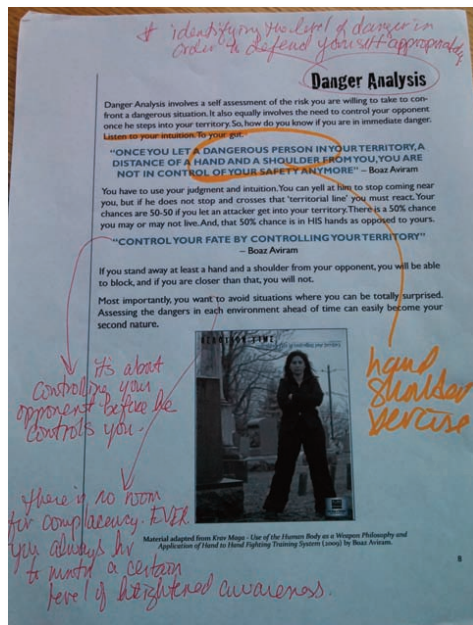 * identifying the level of danger in
order to defend yourself appropriately
Danger Analysis
Danger Analysis involves a self assessment of the risk you are willing to take to con-
front a dangerous situation. It also equally involves the need to control your opponent
once he steps into your territory. So, how do you know if you are in immediate danger.
Listen to your intuition. To your gut.
“ONCE YOU LET A DANGEROUS PERSON IN YOUR TERRITORY, A
DISTANCE OF A HAND AND A SHOULDER FROM YOU, YOU ARE
NOT IN CONTROL OF YOUR SAFETY ANYMORE” – Boaz Aviram
You have to use your judgment and intuition. You can yell at him to stop coming near
you, but if he does not stop and crosses that ‘territorial line’ you must react. Your
chances are 50-50 if you let an attacker get into your territory. There is a 50% chance
you may or may not live. And, that 50% chance is in HIS hands as opposed to yours.
“CONTROL YOUR FATE BY CONTROLLING YOUR TERRITORY”
– Boaz Aviram
If you stand away at least a hand and a shoulder from your opponent, you will be able
to block, and if you are closer than that, you will not.
Most importantly, you want to avoid situations where you can be totally surprised.
Assessing the dangers in each environment ahead of time can easily become your
second nature.
REACTION TIME
it's about
controlling your
opponent before he
controls you.
hand
shoulder
there is no room
for complacency. EVER
you always hv
to a certain
level of heightened awareness.
Material adapted from Krav Maga - Use of the Human Body as a Weapon Philosophy and
Application of Hand to Hand Fighting Training System (2009) by Boaz Aviram.
8